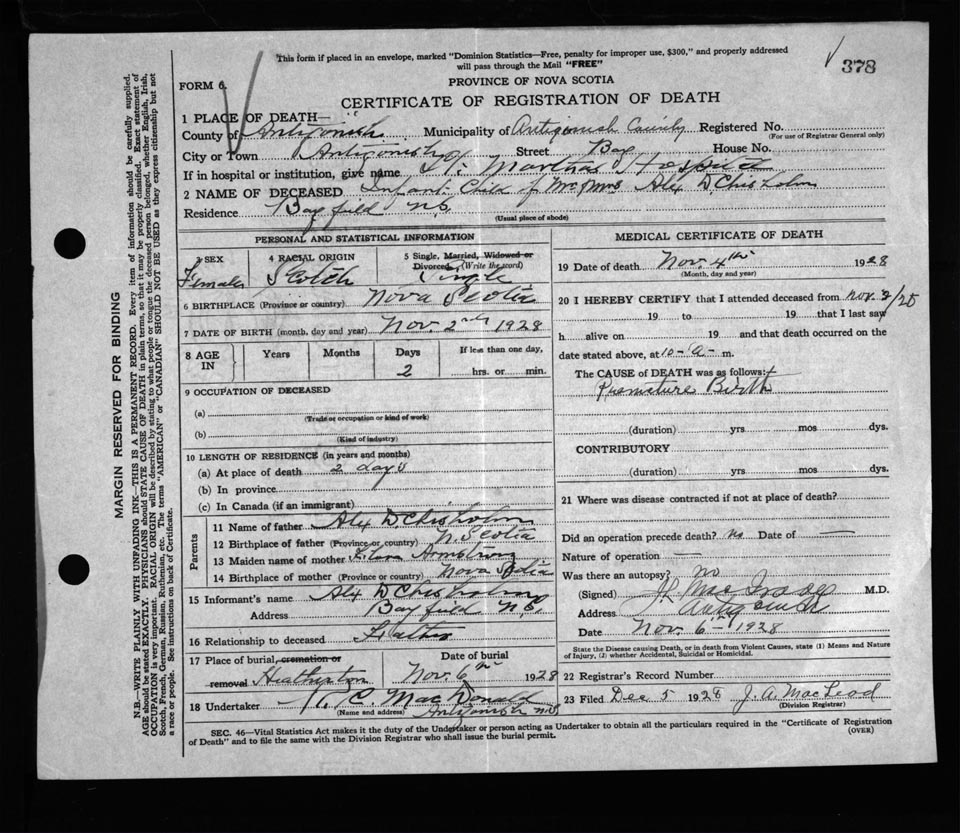 This form if placed in an envelope, marked "Dominion Statistics—Free, penalty for improper use, $300," and properly addressed
will pass through the Mail "FREE"
378
FORM 6.
PROVINCE OF NOVA SCOTIA
CERTIFICATE OF REGISTRATION OF DEATH
1 PLACE OF DEATH—
County of Antigonish Municipality of Antigonish County Registered No.
(For use of Registrar General only)
City or Town Antigonish Street Bay House No.
If in hospital or institution, give name St. Marthas Hospital
2 NAME OF DECEASED Infant Child of Mr. Mrs Alex D Chisholm
Residence Bayfield N.S.
(Usual place of abode)
PERSONAL AND STATISTICAL INFORMATION
3 SEX 4 RACIAL ORIGIN 5 Single, Married, Widowed or
Divorced (Write the word)
Female Scotch Single
6 BIRTHPLACE (Province or country) Nova Scotia
7 DATE OF BIRTH (month, day and year) Nov. 2nd 1928
8 AGE IN Years Months Days If less than one day,
2 hrs. or min.
9 OCCUPATION OF DECEASED
(a)
(Trade or occupation or kind of work)
(b)
(Kind of industry)
10 LENGTH OF RESIDENCE (in years and months)
(a) At place of death 2 days
(b) In province
(c) In Canada (if an immigrant)
Parents
11 Name of father Alex D Chisholm
12 Birthplace of father (Province or country) N. Scotia
13 Maiden name of mother Armstrong
14 Birthplace of mother (Province or country) Nova Scotia
15 Informant's name Alex D Chisholm
Address Bayfield N.S.
16 Relationship to deceased Father
17 Place of burial, cremation or Date of burial
removal Heatherton Nov. 6th 1928
18 Undertaker C. MacDonald
(Name and address) Antigonish N.S.
MEDICAL CERTIFICATE OF DEATH
19 Date of death Nov 4th 1928
(Month, day and year)
20 I HEREBY CERTIFY that I attended deceased from Nov.
19 to 19 that I last saw
h alive on 19 and that death occurred on the
date stated above, at 10-a- m.
The CAUSE of DEATH was as follows:†
Premature Birth
(duration) yrs mos dys.
CONTRIBUTORY
(duration) yrs mos dys.
21 Where was disease contracted if not at place of death?
Did an operation precede death? no Date of —
Nature of operation —
Was there an autopsy? no
(Signed) M.D.
Address Antigonish
Date Nov. 6th 1928
State the Disease causing Death, or in death from Violent Causes, state (1) Means and Nature
of Injury, (2) whether Accidental, Suicidal or Homicidal.
22 Registrar's Record Number
23 Filed Dec 5 1928 J. A. MacLeod
(Division Registrar)
SEC. 46—Vital Statistics Act makes it the duty of the Undertaker or person acting as Undertaker to obtain all the particulars required in the "Certificate of Registration
of Death" and to file the same with the Division Registrar who shall issue the burial permit.
(OVER)
MARGIN RESERVED FOR BINDING
N.B.—WRITE PLAINLY WITH UNFADING INK—THIS IS A PERMANENT RECORD. Every item of information should be carefully supplied.
AGE should be stated EXACTLY. PHYSICIANS should STATE CAUSE OF DEATH in plain terms, so that it may be properly classified. Exact statement of
OCCUPATION is very important. RACIAL ORIGIN will be described by stating to what people or tongue the deceased person belonged, whether English, Irish,
Scotch, French, German, Russian, Ruthenian, etc. The terms "AMERICAN" or "CANADIAN" SHOULD NOT BE USED as they express citizenship but not
a race or people. See instructions on back of Certificate.